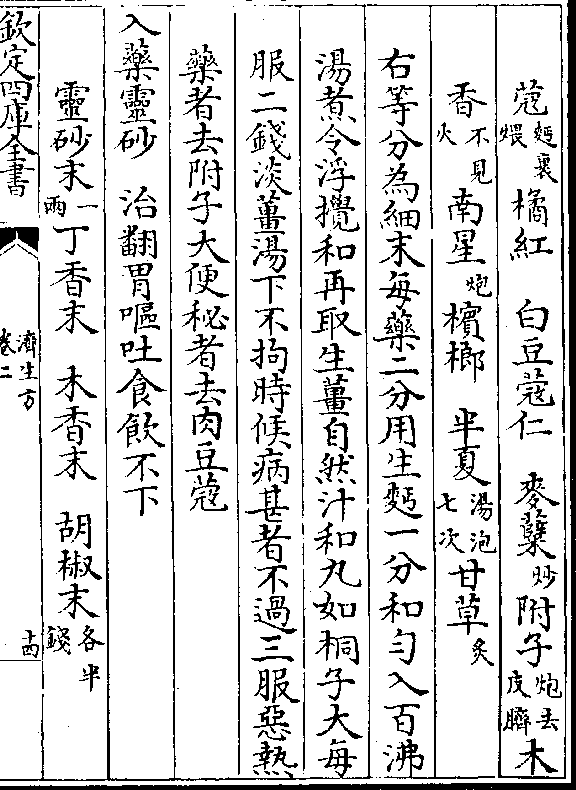 蔻麵裹煨橘紅 白豆蔻仁 麥蘗炒附子炮去皮臍木
香不見火南星炮檳榔 半夏湯泡七次甘草炙
右等分為細末每藥二分用生麪一分和勻入百沸
湯煮令浮攪和再取生薑自然汁和丸如桐子大每
服二錢淡薑湯下不拘時候病甚者不過三服惡熱
藥者去附子大便秘者去肉豆蔻
入藥靈砂 治翻胃嘔吐食飲不下
靈砂末一兩丁香末 木香末 胡椒末各半錢
欽定四庫全書
濟生方
卷二
十四